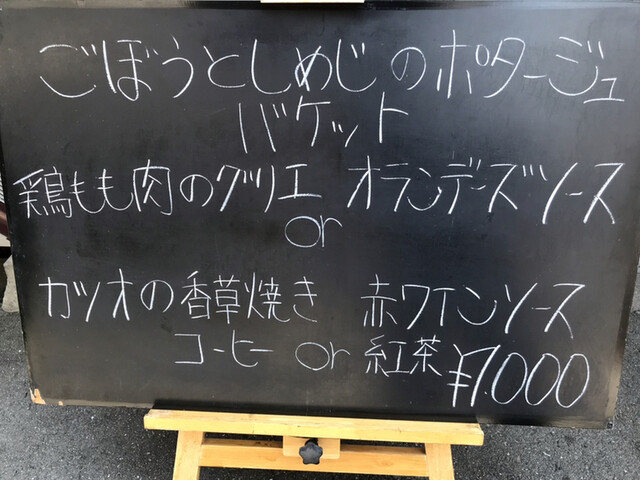 ごぼうとしめじのポタージュ
バケット
鶏もも肉のグリエ オランデーズソース
or
カツオの香草焼き 赤ワインソース
コーヒー or 紅茶 ¥1.000